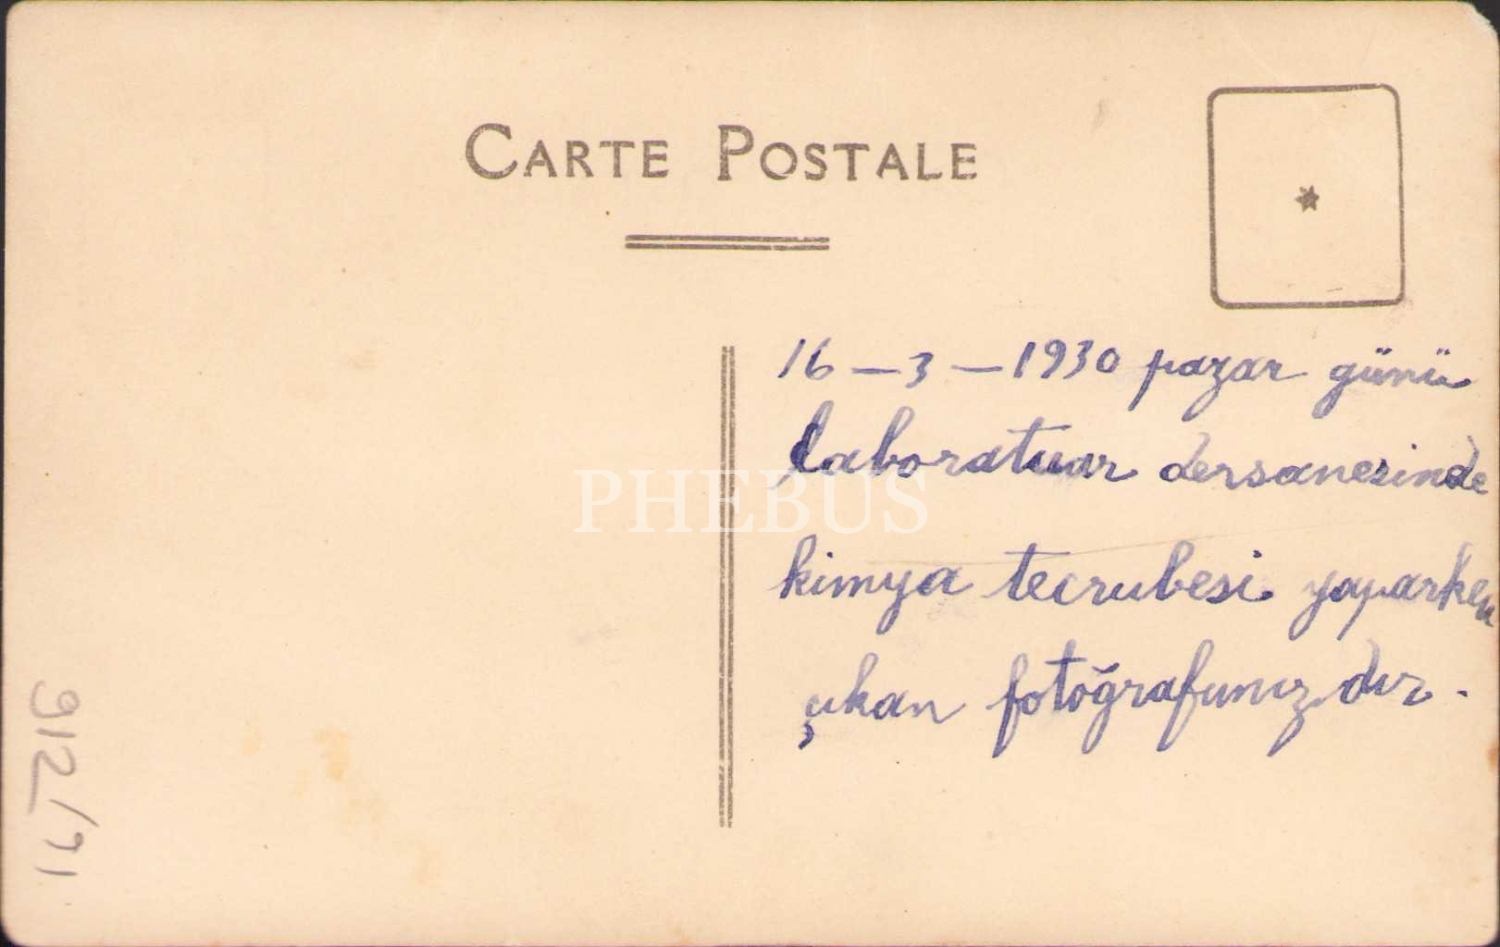 CARTE POSTALE
16 — 3 — 1930 pazar günü
laboratuar dersanesinde
kimya tecrubesi yaparken
çıkan fotoğrafımız dır.
PHEBUS
912/71